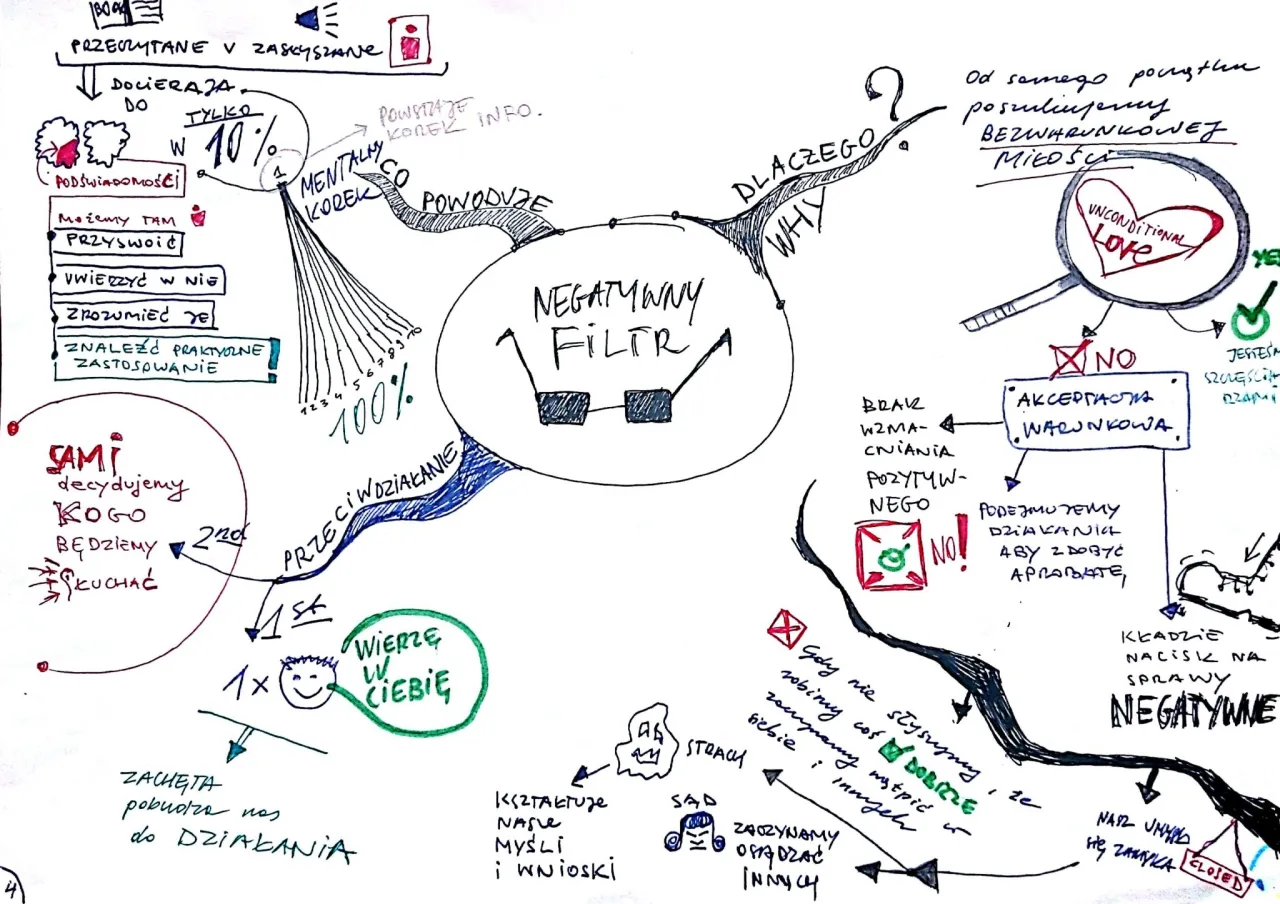 BOOK
PRZECZYTANE V ZASŁYSZANE
i
DOCIERAJĄ
DO
TYLKO
W 10%
PODŚWIADOMOŚCI
MOŻEMY TAM
PRZYSWOIĆ
UWIERZYĆ W NIE
ZROZUMIEĆ JE
ZNALEŹĆ PRAKTYCZNE
ZASTOSOWANIE !
1
POWSTAJE
KOREK INFO.
MENTALNY
KOREK
1 2 3 4 5 6 7 8 9 10
100%
CO
POWODUJE
NEGATYWNY
FILTR
DLACZEGO ?
WHY
Od samego początku
poszukujemy
BEZWARUNKOWEJ
MIŁOŚCI
UNCONDITIONAL
LOVE
YE
JESTEŚM
SZCZĘŚLIW
RZAMI
NO
AKCEPTACJA
WARUNKOWA
BRAK
WZMA-
CNIANIA
POZYTYW-
NEGO
NO!
PODEJMUJEMY
DZIAŁANIA
ABY ZDOBYĆ
APROBATĘ
KŁADZIE
NACISK NA
SPRAWY
NEGATYWNE
NASZ UMYSŁ
SIĘ ZAMYKA
CLOSED
Gdy nie słyszymy, że
robimy coś DOBRZE
zaczynamy wątpić w
siebie i innych
STRACH
KSZTAŁTUJE
NASZE
MYŚLI
I WNIOSKI
SĄD
ZACZYNAMY
OSĄDZAĆ
INNYCH
PRZECIWDZIAŁANIE
2nd
SAMI
decydujemy
KOGO
BĘDZIEMY
SŁUCHAĆ
1st
1x
WIERZĘ
W
CIEBIĘ
ZACHĘTA
pobudza nas
do DZIAŁANIA
4